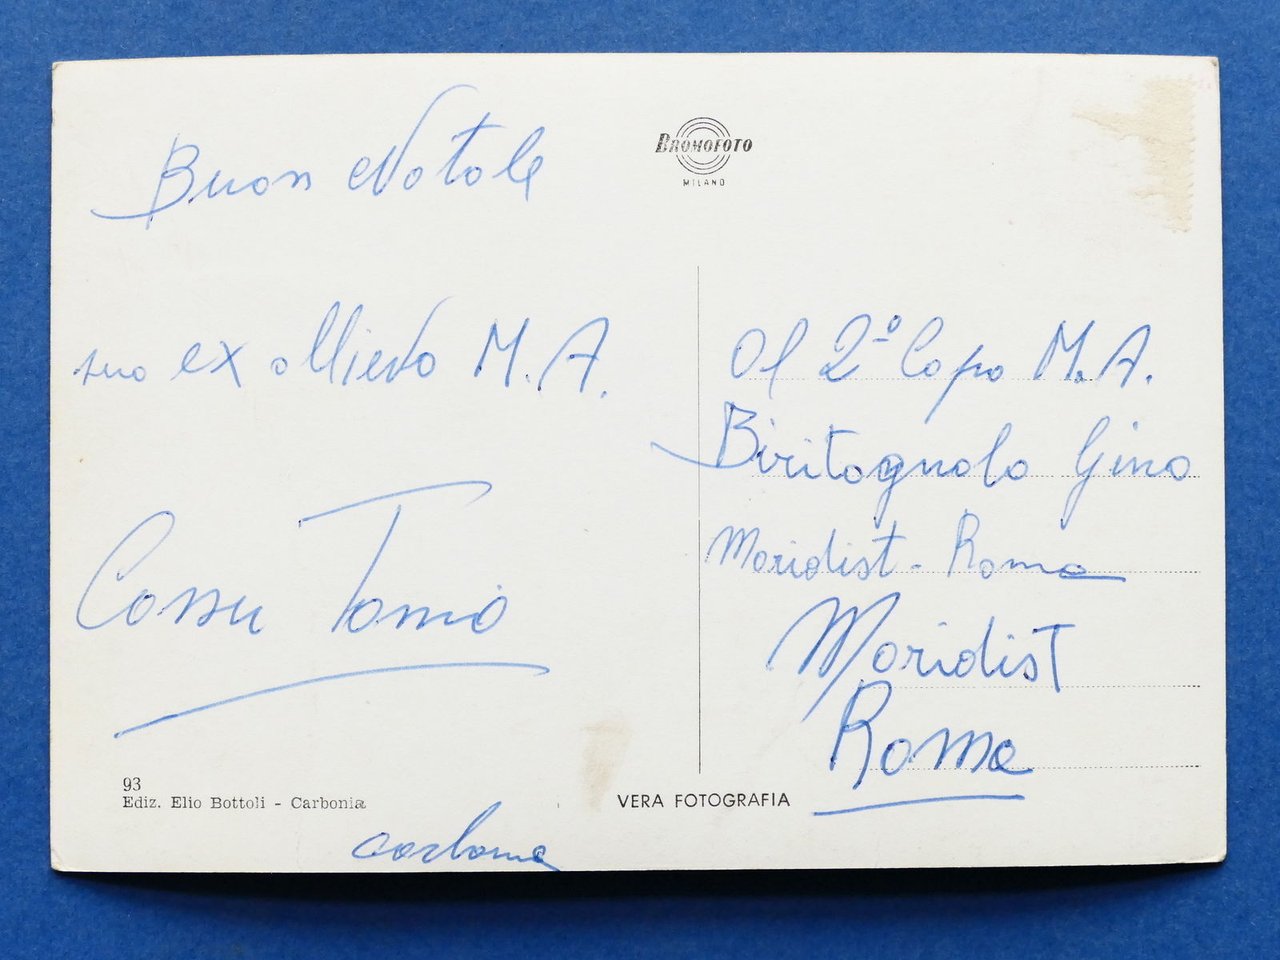 Buon Natale
suo ex allievo M.A.
Cossu Tomio
93
Ediz. Elio Bottoli - Carbonia
carbonia
BROMOFOTO
MILANO
Al 2º Capo M.A.
Biritognolo Gino
Maridist - Roma
Maridist
Roma
VERA FOTOGRAFIA